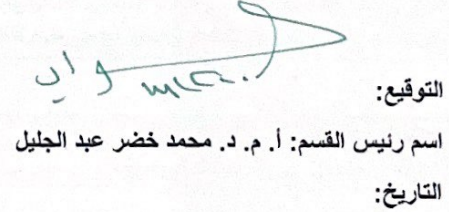 التوقيع:
اسم رئيس القسم: أ. م. د. محمد خضر عبد الجليل
التاريخ: